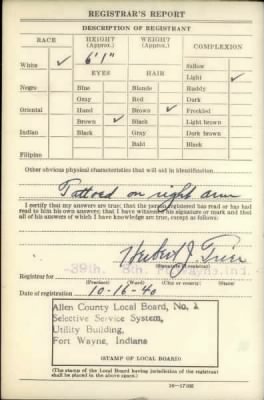 REGISTRAR'S REPORT
DESCRIPTION OF REGISTRANT
RACE
HEIGHT
(Approx.)
WEIGHT
(Approx.)
COMPLEXION
White ✓
6' 1"
Sallow
Light ✓
EYES
HAIR
Negro
Blue
Blonde
Ruddy
Gray
Red
Dark
Oriental
Hazel
Brown ✓
Freckled
Brown ✓
Black
Light brown
Indian
Black
Gray
Dark brown
Bald
Black
Filipino
Other obvious physical characteristics that will aid in identification
Tattoed on right arm
I certify that my answers are true; that the person registered has read or has had
read to him his own answers; that I have witnessed his signature or mark and that
all of his answers of which I have knowledge are true, except as follows:
Registrar for
39th.
Ft. Wayne, Ind.
(Precinct)
(Ward)
(City or county)
(State)
Date of registration 10-16-40
Allen County Local Board, No.
Selective Service System,
Utility Building,
Fort Wayne, Indiana
(STAMP OF LOCAL BOARD)
(The stamp of the Local Board having jurisdiction of the registrant
shall be placed in the above space.)